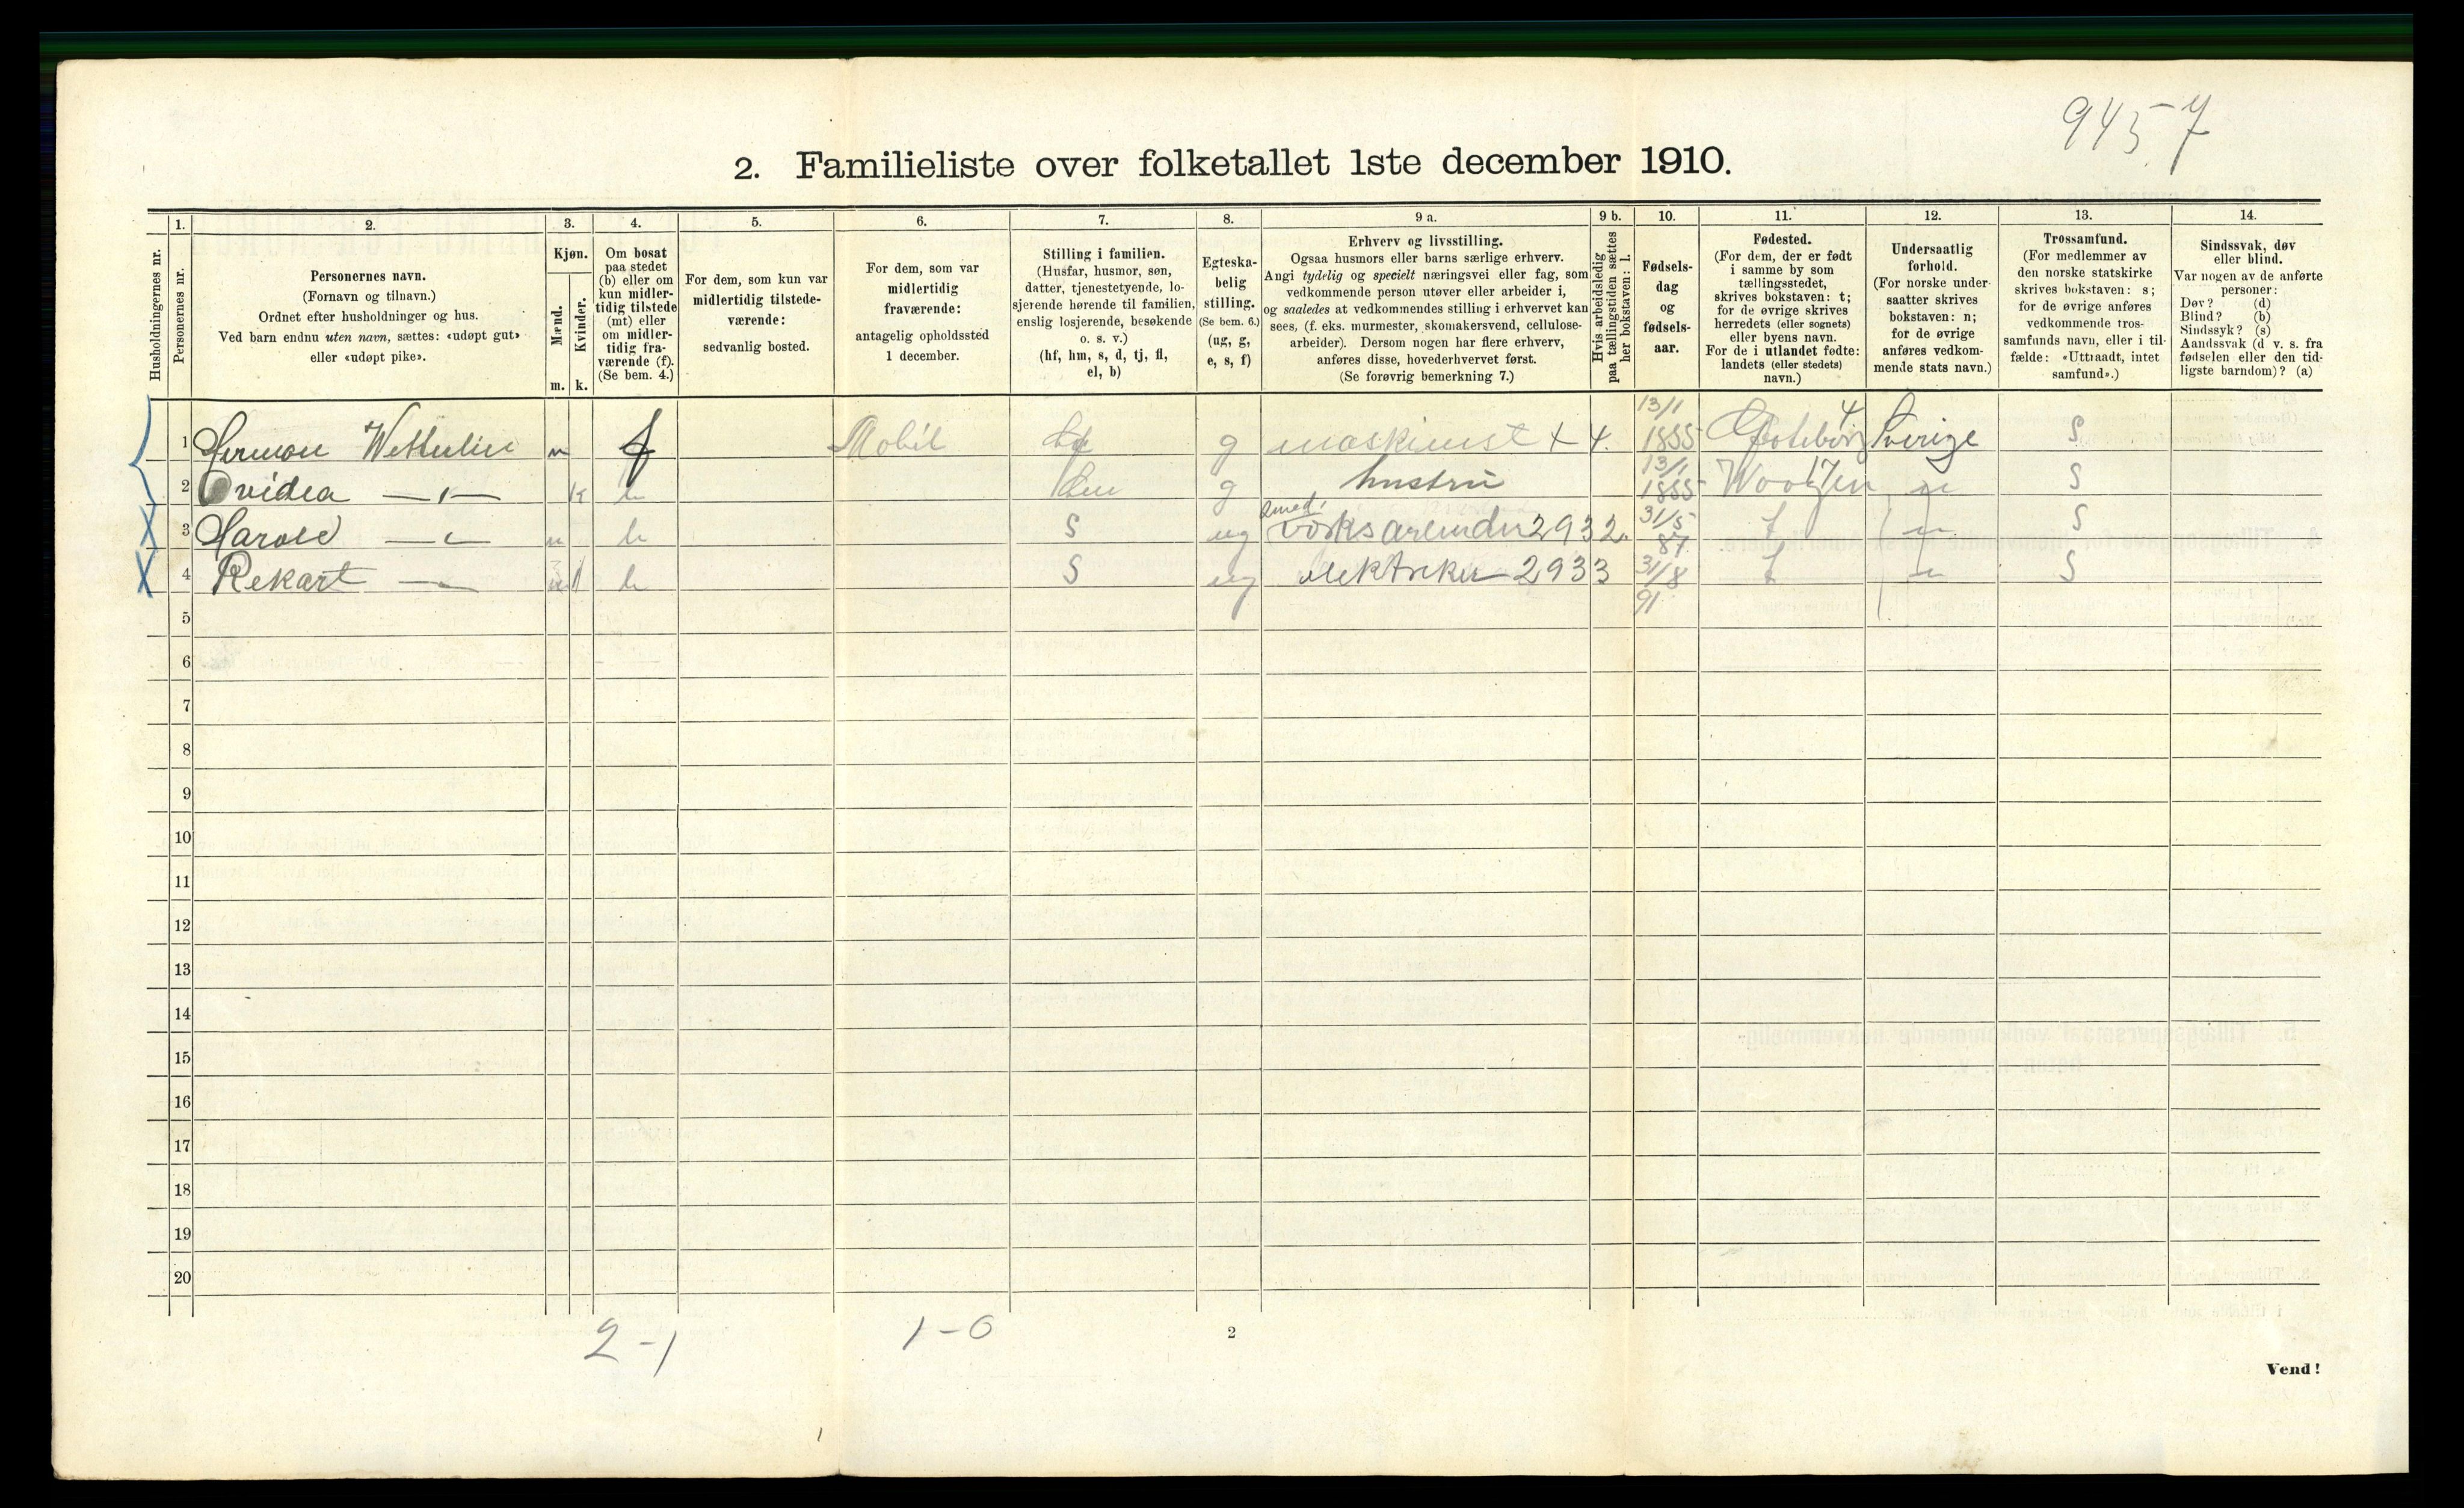 945 7
2. Familieliste over folketallet 1ste december 1910.
Husholdningernes nr.
1.
Personernes nr.
2.
Personernes navn.
(Fornavn og tilnavn.)
Ordnet efter husholdninger og hus.
Ved barn endnu uten navn, sættes: «udøpt gut»
eller «udøpt pike».
3.
Kjøn.
Mænd.
Kvinder.
m. k.
4.
Om bosat
paa stedet
(b) eller om
kun midler-
tidig tilstede
(mt) eller
om midler-
tidig fra-
værende (f).
(Se bem. 4.)
5.
For dem, som kun var
midlertidig tilstede-
værende:
sedvanlig bosted.
6.
For dem, som var
midlertidig
fraværende:
antagelig opholdssted
1 december.
7.
Stilling i familien.
(Husfar, husmor, søn,
datter, tjenestetyende, lo-
sjerende hørende til familien,
enslig losjerende, besøkende
o. s. v.)
(hf, hm, s, d, tj, fl,
el, b)
8.
Egteska-
belig
stilling.
(Se bem. 6.)
(ug, g,
e, s, f)
9 a.
Erhverv og livsstilling.
Ogsaa husmors eller barns særlige erhverv.
Angi tydelig og specielt næringsvei eller fag, som
vedkommende person utøver eller arbeider i,
og saaledes at vedkommendes stilling i erhvervet kan
sees, (f. eks. murmester, skomakersvend, cellulose-
arbeider). Dersom nogen har flere erhverv,
anføres disse, hovederhvervet først.
(Se forøvrig bemerkning 7.)
9 b.
Hvis arbeidsledig
paa tællingstiden sættes
her bokstaven: l.
10.
Fødsels-
dag
og
fødsels-
aar.
11.
Fødested.
(For dem, der er født
i samme by som
tællingsstedet,
skrives bokstaven: t;
for de øvrige skrives
herredets (eller sognets)
eller byens navn.
For de i utlandet fødte:
landets (eller stedets)
navn.)
12.
Undersaatlig
forhold.
(For norske under-
saatter skrives
bokstaven: n;
for de øvrige
anføres vedkom-
mende stats navn.)
13.
Trossamfund.
(For medlemmer av
den norske statskirke
skrives bokstaven: s;
for de øvrige anføres
vedkommende tros-
samfunds navn, eller i til-
fælde: «Uttraadt, intet
samfund».)
14.
Sindssvak, døv
eller blind.
Var nogen av de anførte
personer:
Døv? (d)
Blind? (b)
Sindssyk? (s)
Aandssvak (d. v. s. fra
fødselen eller den tid-
ligste barndom)? (a)
1 Herman Wetterlin m f Mobil hf g maskinist + 4. 13/1 1855 Gøteborg 4 Sverige S
2 Ovidea —"— k b hm g hustru 13/1 1855 n S
3 Harold —"— m b S ug smed. 2932. 31/5 87 t n S
4 Rekart —"— m b S ug elektriker 2933 31/8 91 t n S
5
6
7
8
9
10
11
12
13
14
15
16
17
18
19
20
2-1 1-0
2
Vend!